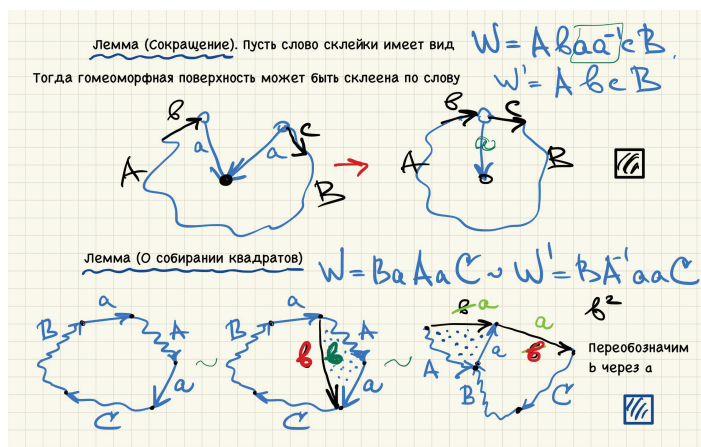 Лемма (Сокращение). Пусть слово склейки имеет вид W = Abaa⁻¹cB.
Тогда гомеоморфная поверхность может быть склеена по слову W' = AbcB
b c b c
a a a
A B A B
Лемма (О собирании квадратов) W = BaAaC ~ W' = BA⁻¹aaC
a a b a b²
B A B A a
b b b
a a a
A B
C C C
~ ~
Переобозначим
b через a